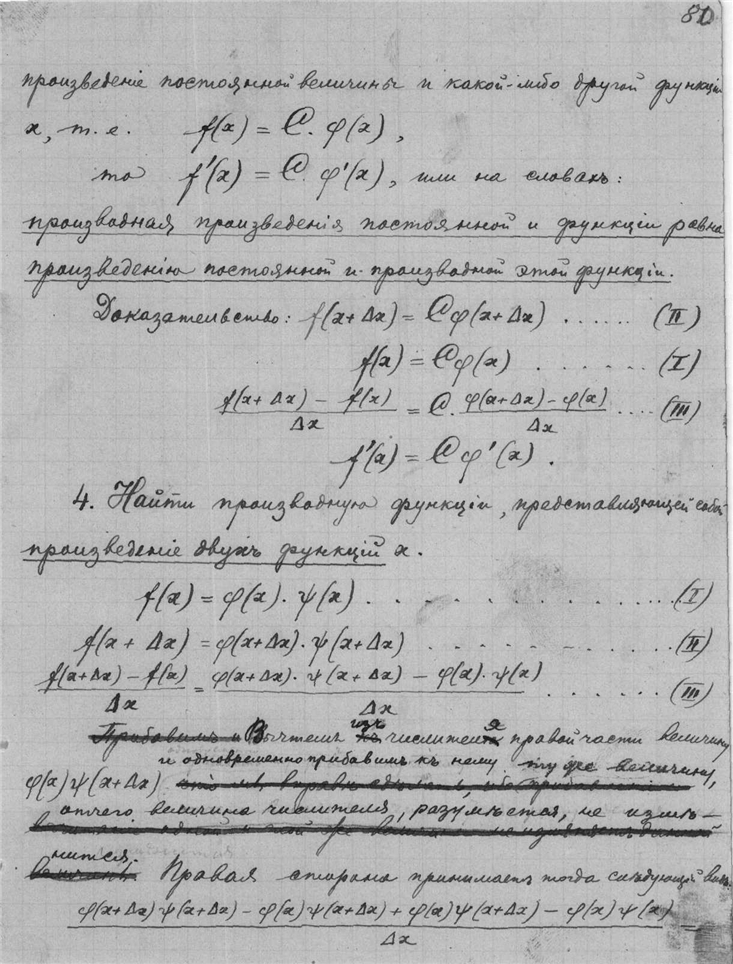 80
произведеніе постоянной величины и какой-либо другой функціи
x, т.е. f(x) = C. φ(x),
то f'(x) = C. φ'(x), или на словахъ:
производная произведенія постоянной и функціи равна
произведенію постоянной и производной этой функціи.
Доказательство: f(x+Δx) = Cφ(x+Δx) ...... (II)
f(x) = Cφ(x) ....... (I)
(f(x+Δx) − f(x))/Δx = C. (φ(x+Δx) − φ(x))/Δx .... (III)
f'(x) = Cφ'(x).
4. Найти производную функціи, представляющей собой
произведеніе двухъ функцій x.
f(x) = φ(x). ψ(x) ............ (I)
f(x + Δx) = φ(x+Δx). ψ(x+Δx) ........... (II)
(f(x+Δx) − f(x))/Δx = (φ(x+Δx). ψ(x+Δx) − φ(x). ψ(x))/Δx ....... (III)
Прибавимъ и Вычтемъ изъ числителя правой части величину
и одновременно прибавимъ къ нему ту же величину,
φ(x)ψ(x+Δx)
отчего величина числителя, разумѣется, не измѣ-
нится. Правая сторона принимаетъ тогда слѣдующій видъ:
(φ(x+Δx)ψ(x+Δx) − φ(x)ψ(x+Δx) + φ(x)ψ(x+Δx) − φ(x)ψ(x))/Δx =